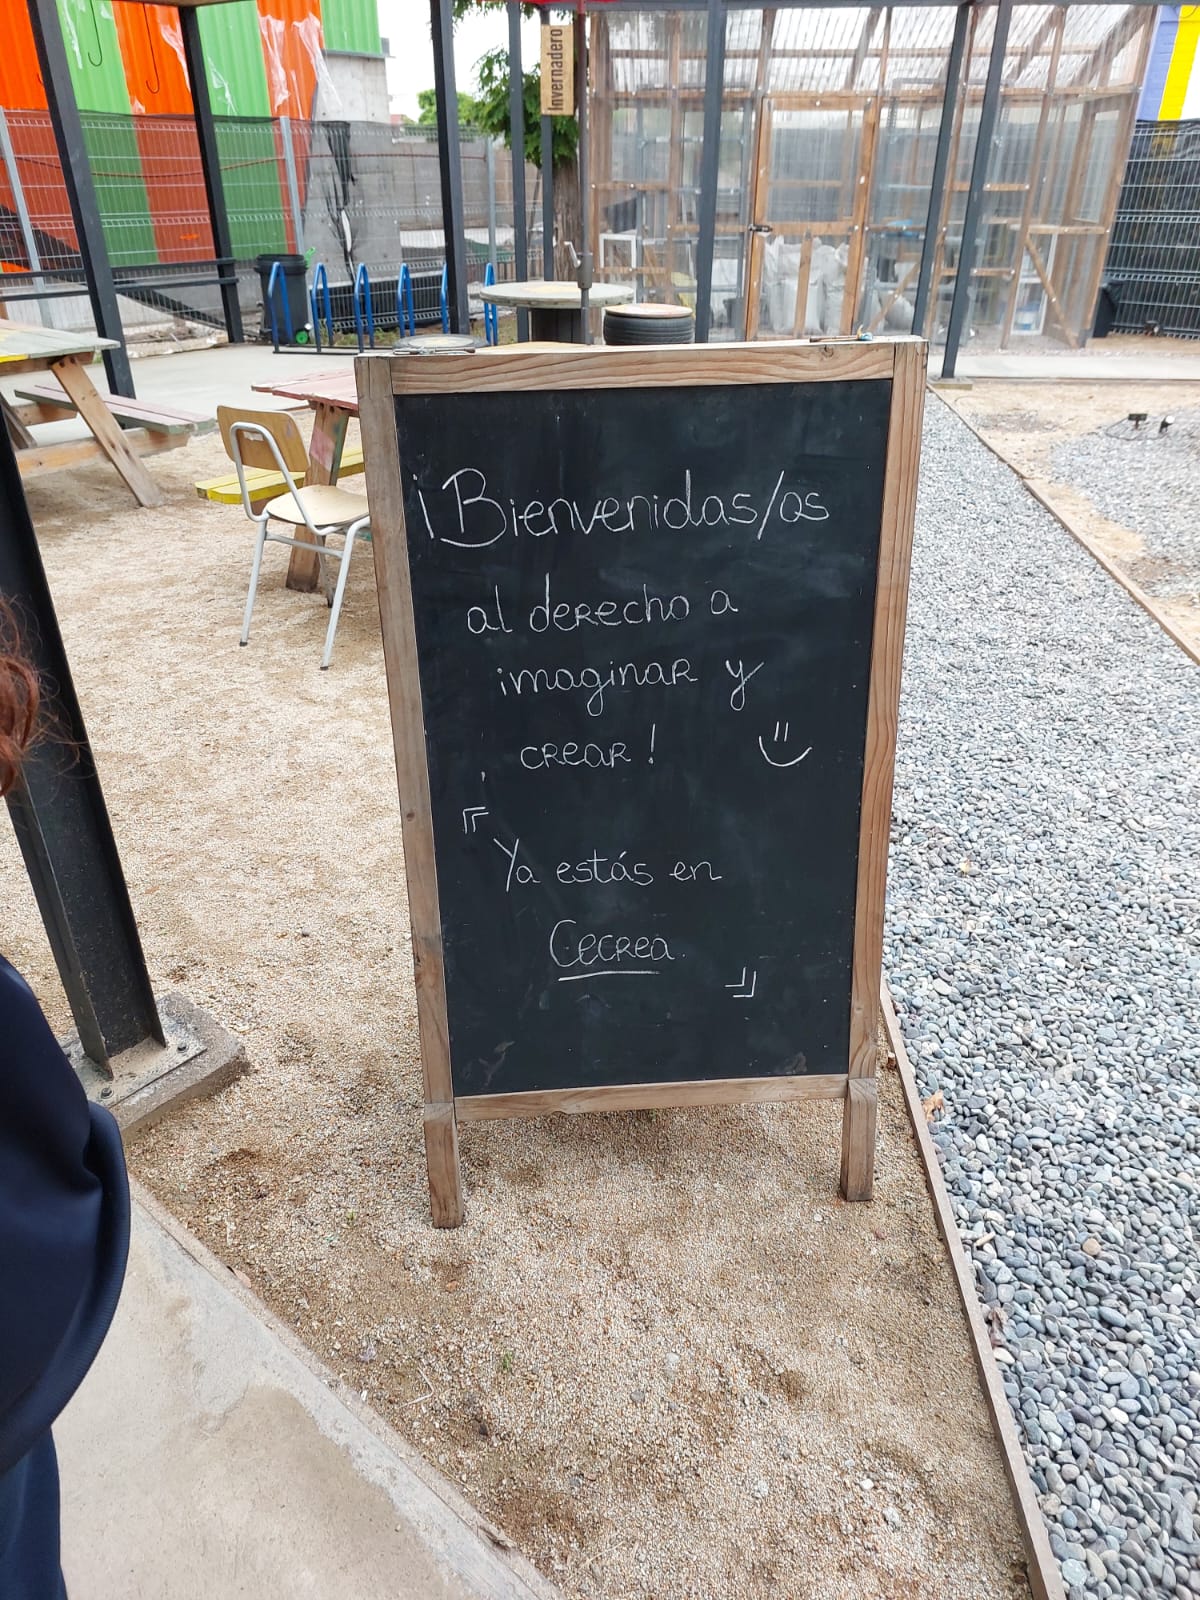 Invernadero
¡Bienvenidas/os
al derecho a
imaginar y
crear!
«
Ya estás en
Cecrea.
»